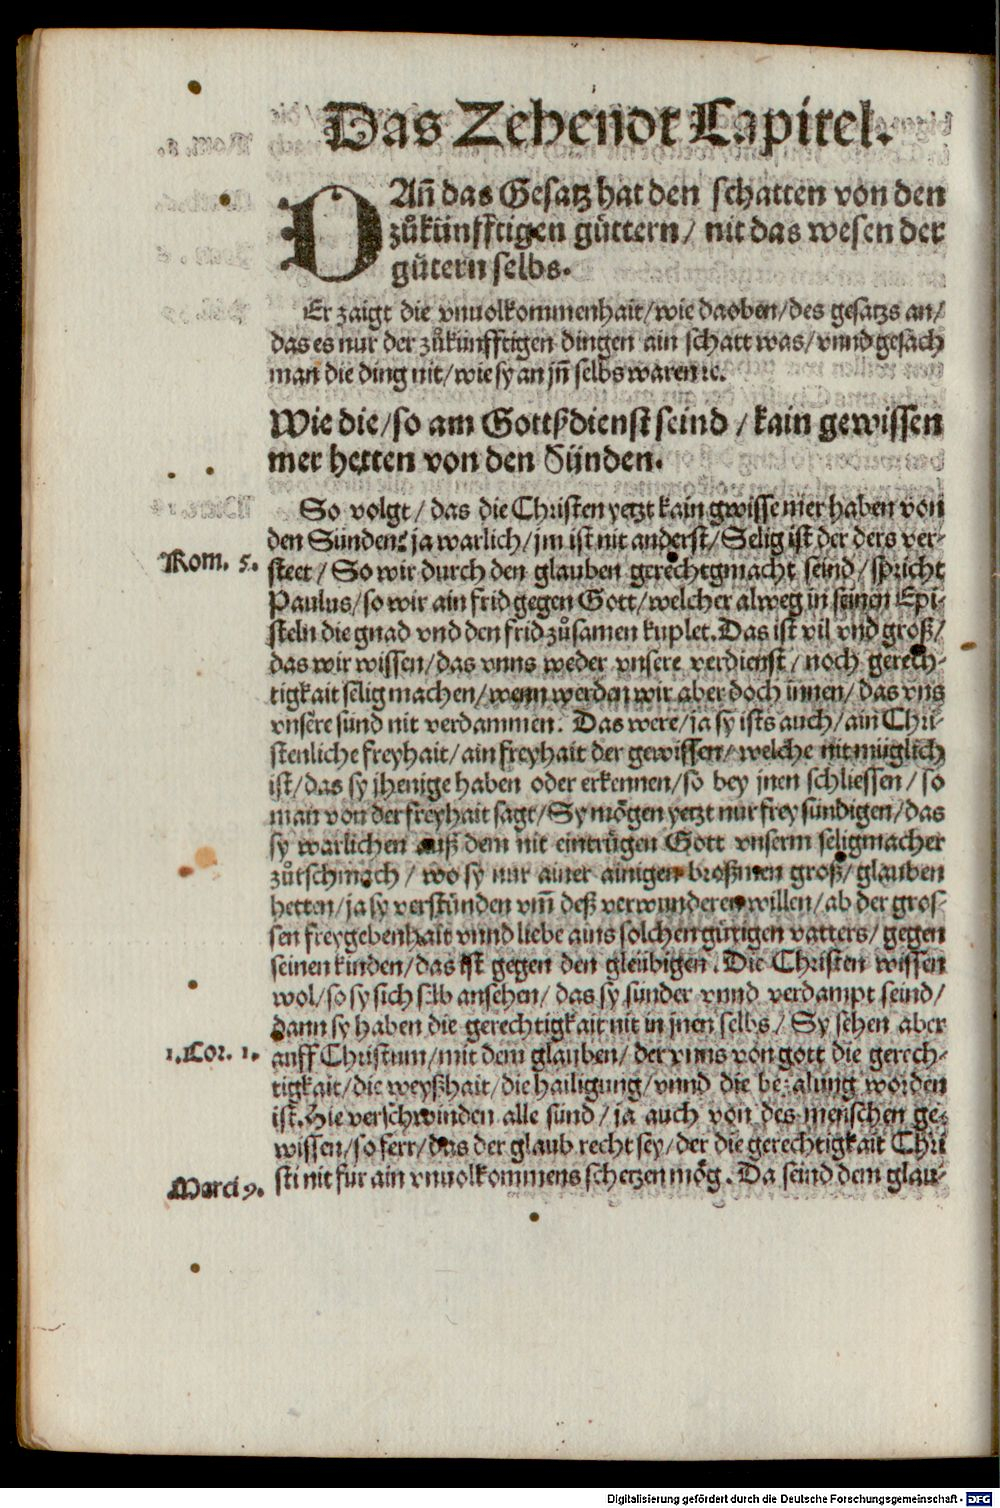 Das Zehendt Capitel.
DAñ das Gesatz hat den schatten von den
zůkünfftigen güttern / nit das wesen der
gütern selbs.
Er zaigt die vnuolkommenhait / wie daoben / des gesatzs an /
das es nur der zůkünfftigen dingen ain schatt was / vnnd gesach
man die ding nit / wie sy an jñ selbs waren ꝛc.
Wie die / so am Gottßdienst seind / kain gewissen
mer hetten von den Sünden.
So volgt / das die Christen yetzt kain gwisse mer haben von
den Sünden: ja warlich / jm ist nit anderst / Selig ist der ders ver-
Rom. 5. steet / So wir durch den glauben gerechtgmacht seind / spricht
Paulus / so wir ain frid gegen Gott / welcher alweg in seinen Epi-
steln die gnad vnd den frid zůsamen kuplet. Das ist vil vnd groß /
das wir wissen / das vnns weder vnsere verdienst / noch gerech-
tigkait selig machen / wenn werden wir aber doch innen / das vns
vnsere sünd nit verdammen. Das were / ja sy ists auch / ain Chri-
stenliche freyhait / ain freyhait der gewissen / welche nit müglich
ist / das sy jhenige haben oder erkennen / so bey jnen schliessen / so
man von der freyhait sagt / Sy mögen yetzt nur frey sündigen / das
sy warlichen auß dem nit eintrügen Gott vnserm seligmacher
zůtschmach / wo sy nur ainer ainigen broßmen groß / glauben
hetten / ja sy verstünden vm̃ deß verwunderen willen / ab der gros-
sen freygebenhait vnnd liebe ains solchen gütigen vatters / gegen
seinen kinden / das ist gegen den gleübigen. Die Christen wissen
wol / so sy sich selb ansehen / das sy sünder vnnd verdampt seind /
dann sy haben die gerechtigkait nit in jnen selbs / Sy sehen aber
1. Cor. 1. auff Christum / mit dem glauben / der vnns von gott die gerech-
tigkait / die weyßhait / die hailigung / vnnd die bezalung worden
ist. Hie verschwinden alle sünd / ja auch von des menschen ge-
wissen / so ferr / das der glaub recht sey / der die gerechtigkait Chri
Marci 9. sti nit für ain vnuolkommens schetzen mög. Da seind dem glau-
Digitalisierung gefördert durch die Deutsche Forschungsgemeinschaft - DFG